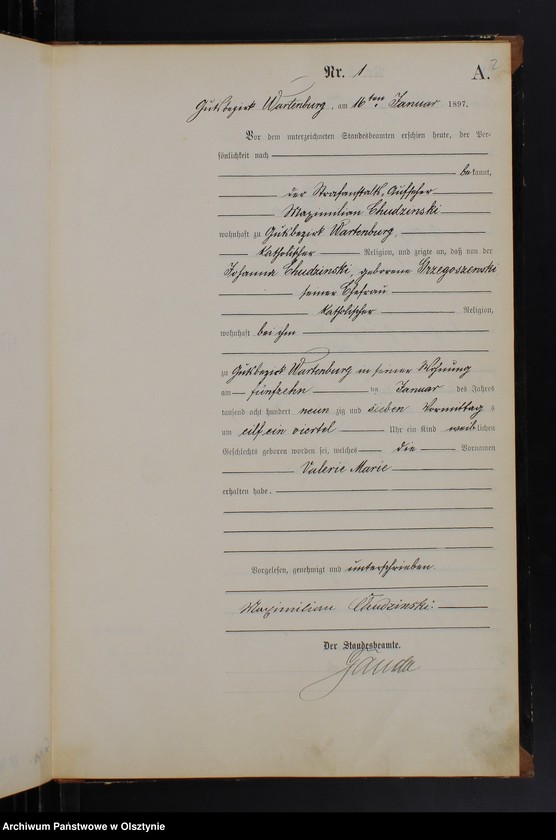 Nr. 1
A. 2
Gutsbezirk Wartenburg, am 16ten Januar 1897.
Vor dem unterzeichneten Standesbeamten erschien heute, der Per-
sönlichkeit nach
bekannt,
der Strafanstalts-Aufseher
Maximilian Chudzinski
wohnhaft zu Gutsbezirk Wartenburg,
katholischer Religion, und zeigte an, daß von der
Johanna Chudzinski, geborene Grzegoszewski
seiner Ehefrau
katholischer Religion,
wohnhaft bei ihm
zu Gutsbezirk Wartenburg in seiner Wohnung
am fünfzehn ten Januar des Jahres
tausend acht hundert neun zig und sieben Vormittags
um eilf ein viertel Uhr ein Kind weiblichen
Geschlechts geboren worden sei, welches die Vornamen
Valerie Marie
erhalten habe.
Vorgelesen, genehmigt und unterschrieben
Maximilian Chudzinski.
Der Standesbeamte.
Archiwum Państwowe w Olsztynie